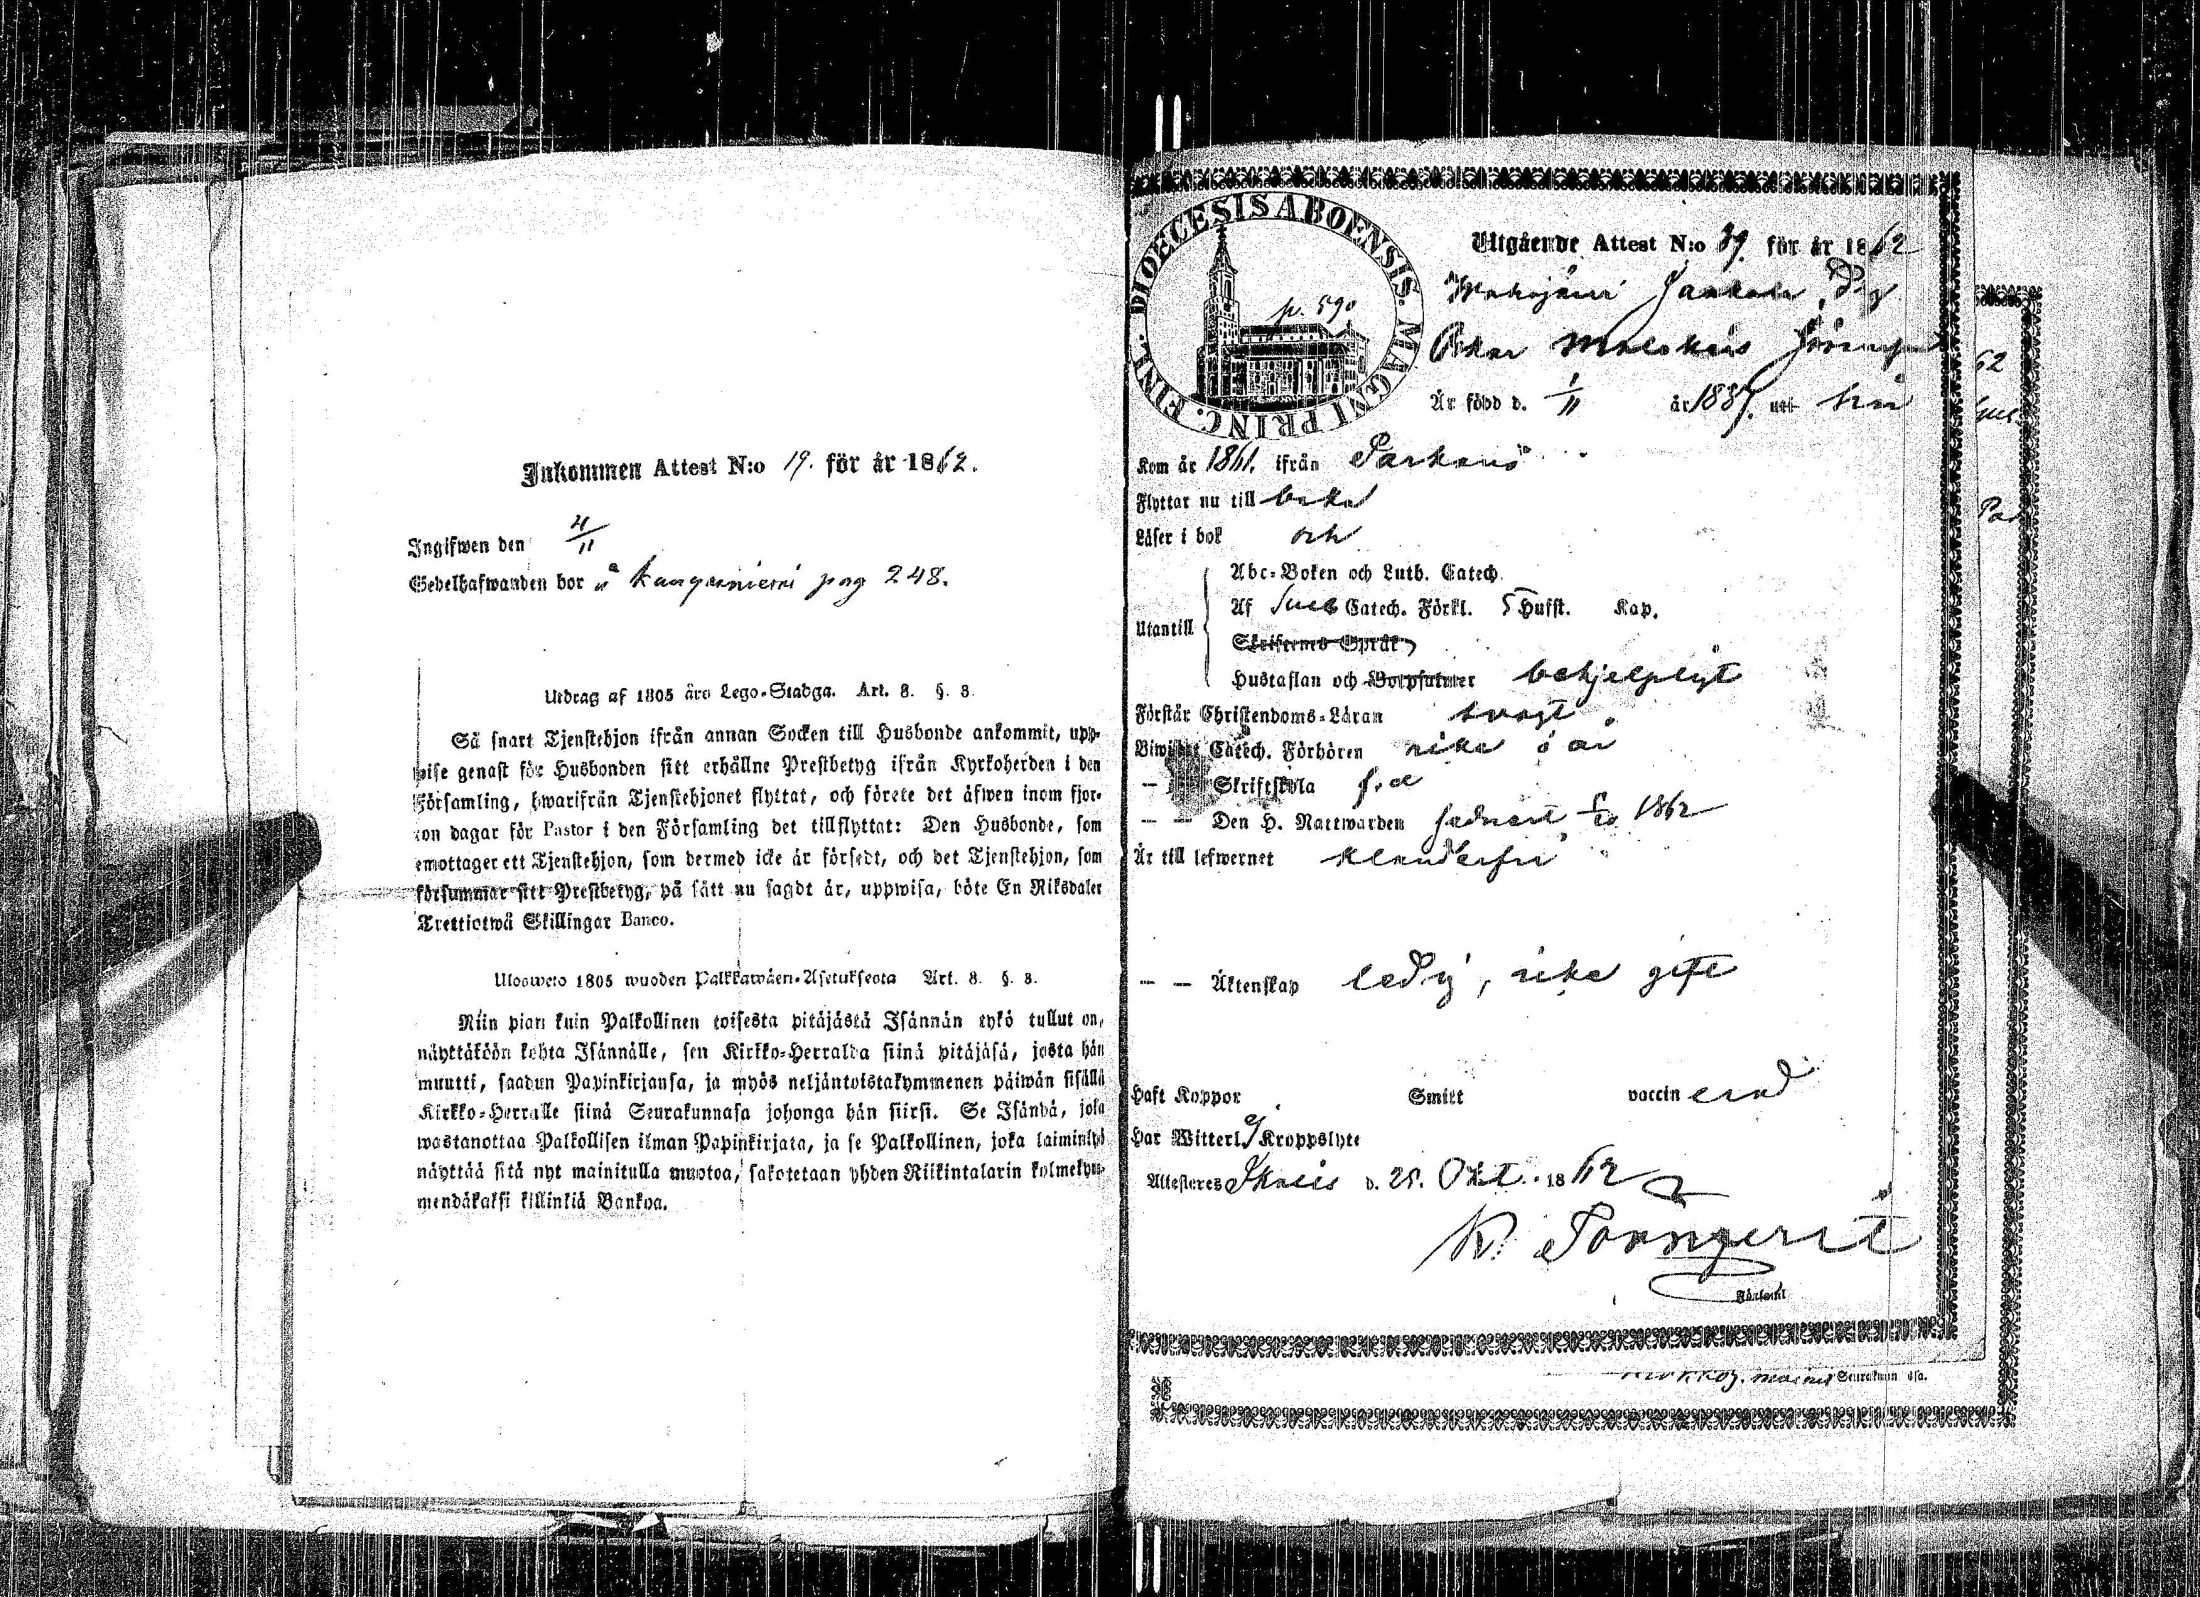 Inkommen Attest N:o 19. för år 1862.
Ingifwen den 4/11
Gevelhafwanden bor å kangarniemi pag 248.
Utdrag af 1805 års Lego-Stadga. Art. 8. §. 8.
Så snart Tjenstehjon ifrån annan Socken till Husbonde ankommit, upp-
wise genast för Husbonden sitt erhållne Prestbetyg ifrån Kyrkoherden i den
Församling, hwarifrån Tjenstehjonet flyttat, och förete det äfwen inom fjor-
ton dagar för Pastor i den Församling det tillflyttat: Den Husbonde, som
emottager ett Tjenstehjon, som dermed icke är försedt, och det Tjenstehjon, som
försummar sitt Prestbetyg, på sätt nu sagdt är, uppwisa, böte En Riksdaler
Trettiotwå Skillingar Banco.
Uloswero 1805 wuoden Palkkawäen-Asetuksesta Art. 8. §. 8.
Niin pian kuin Palkollinen toisesta pitäjästä Isännän tykö tullut on,
näyttäköön kohta Isännälle, sen Kirkko-Herralda siinä pitäjäsä, josta hän
muutti, saadun Papinkirjansa, ja myös neljäntoistakymmenen päiwän sisällä
Kirkko-Herralle siinä Seurakunnasa johonga hän siirsi. Se Isändä, joka
wastanottaa Palkollisen ilman Papinkirjata, ja se Palkollinen, joka laiminlyö
näyttää sitä nyt mainitulla muotoa, sakotetaan yhden Riikintalarin kolmekym-
mendäkaksi killinkiä Bankoa.
DIOECESIS ABOENSIS. MAGNI PRINC. FINL.
p. 590
Utgående Attest N:o 39. för år 1862
Är född d. 1/11 år 1837.
Kom år 1861. ifrån Parkano
Flyttar nu till
Läser i bok
Abc-Boken och Luth. Catech.
Utantill
Af Sveb Catech. Förkl. 5 Hufst. Kap.
Skriftenes Språk
Hustaflan och Botpsalmer behjelpligt
Förstår Christendoms-Läran swagt
Biwistat Catech. Förhören
— — Skriftskola
— — Den H. Nattwarden sednast 1862
Är till lefwernet klanderfri
— — Äktenskap ledig, icke gift
Haft Koppor Smitt vaccinerad
Har Witterl. Kroppslyte
Attesteras d. 25. Okt. 1862